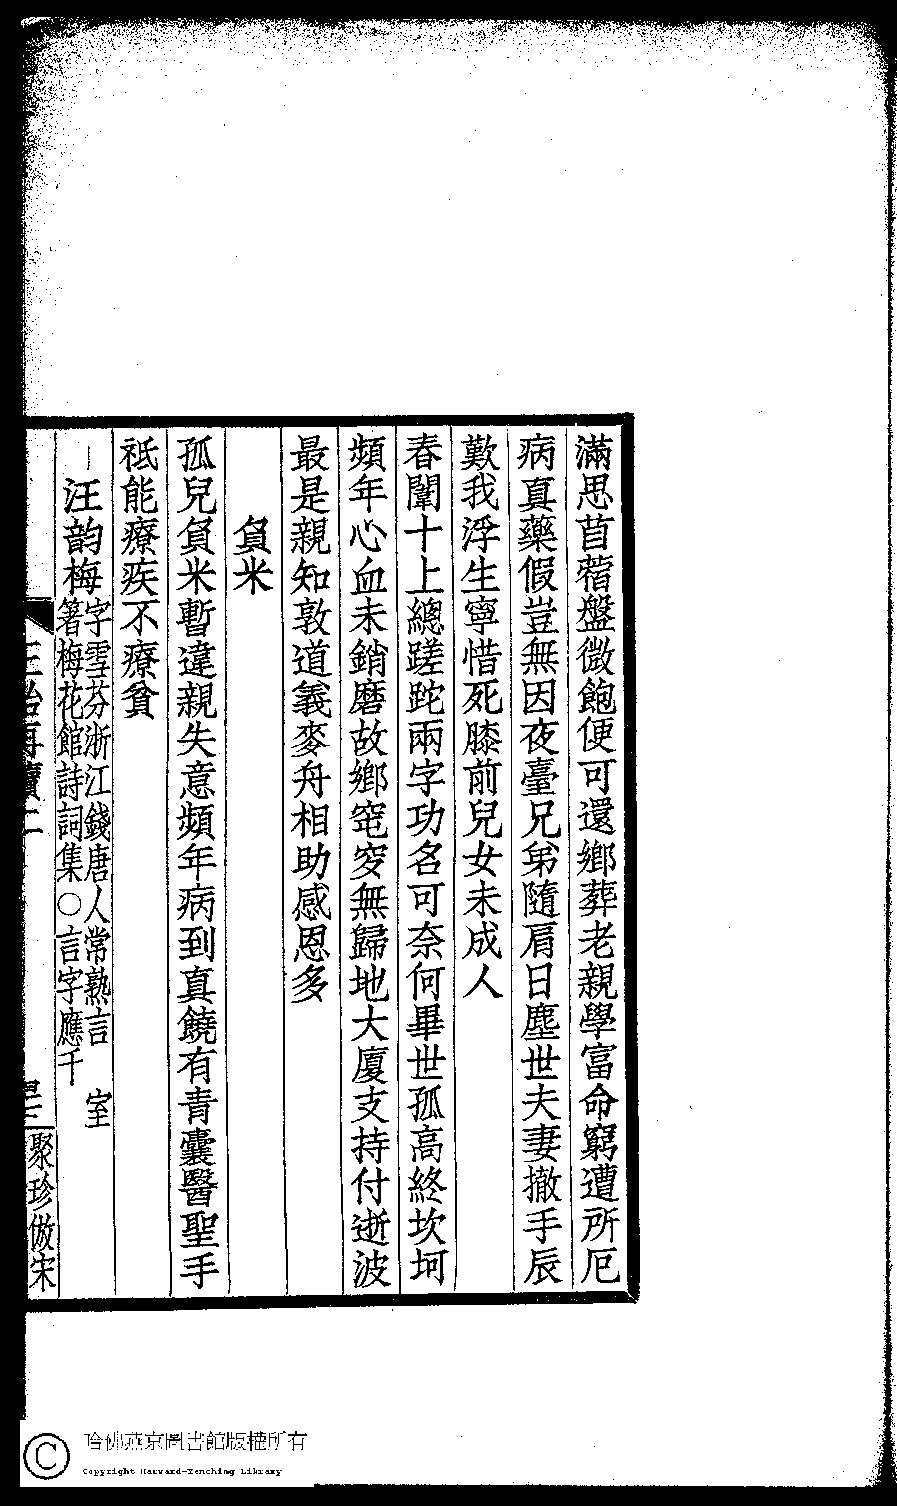 滿思苜蓿盤微飽便可還鄉葬老親學富命窮遭所厄
病真藥假豈無因夜臺兄弟隨肩日塵世夫妻撤手辰
歎我浮生寧惜死膝前兒女未成人
春闈十上總蹉跎兩字功名可奈何畢世孤高終坎坷
頻年心血未銷磨故鄉窀穸無歸地大廈支持付逝波
最是親知敦道義麥舟相助感恩多
負米
孤兒負米暫違親失意頻年病到真饒有青囊醫聖手
祗能療疾不療貧
汪韵梅字雪芬浙江錢唐人常熟言
室
箸梅花館詩詞集○言字應千
聚珍倣宋
哈佛燕京圖書館版權所有
Copyright Harvard-Yenching Library